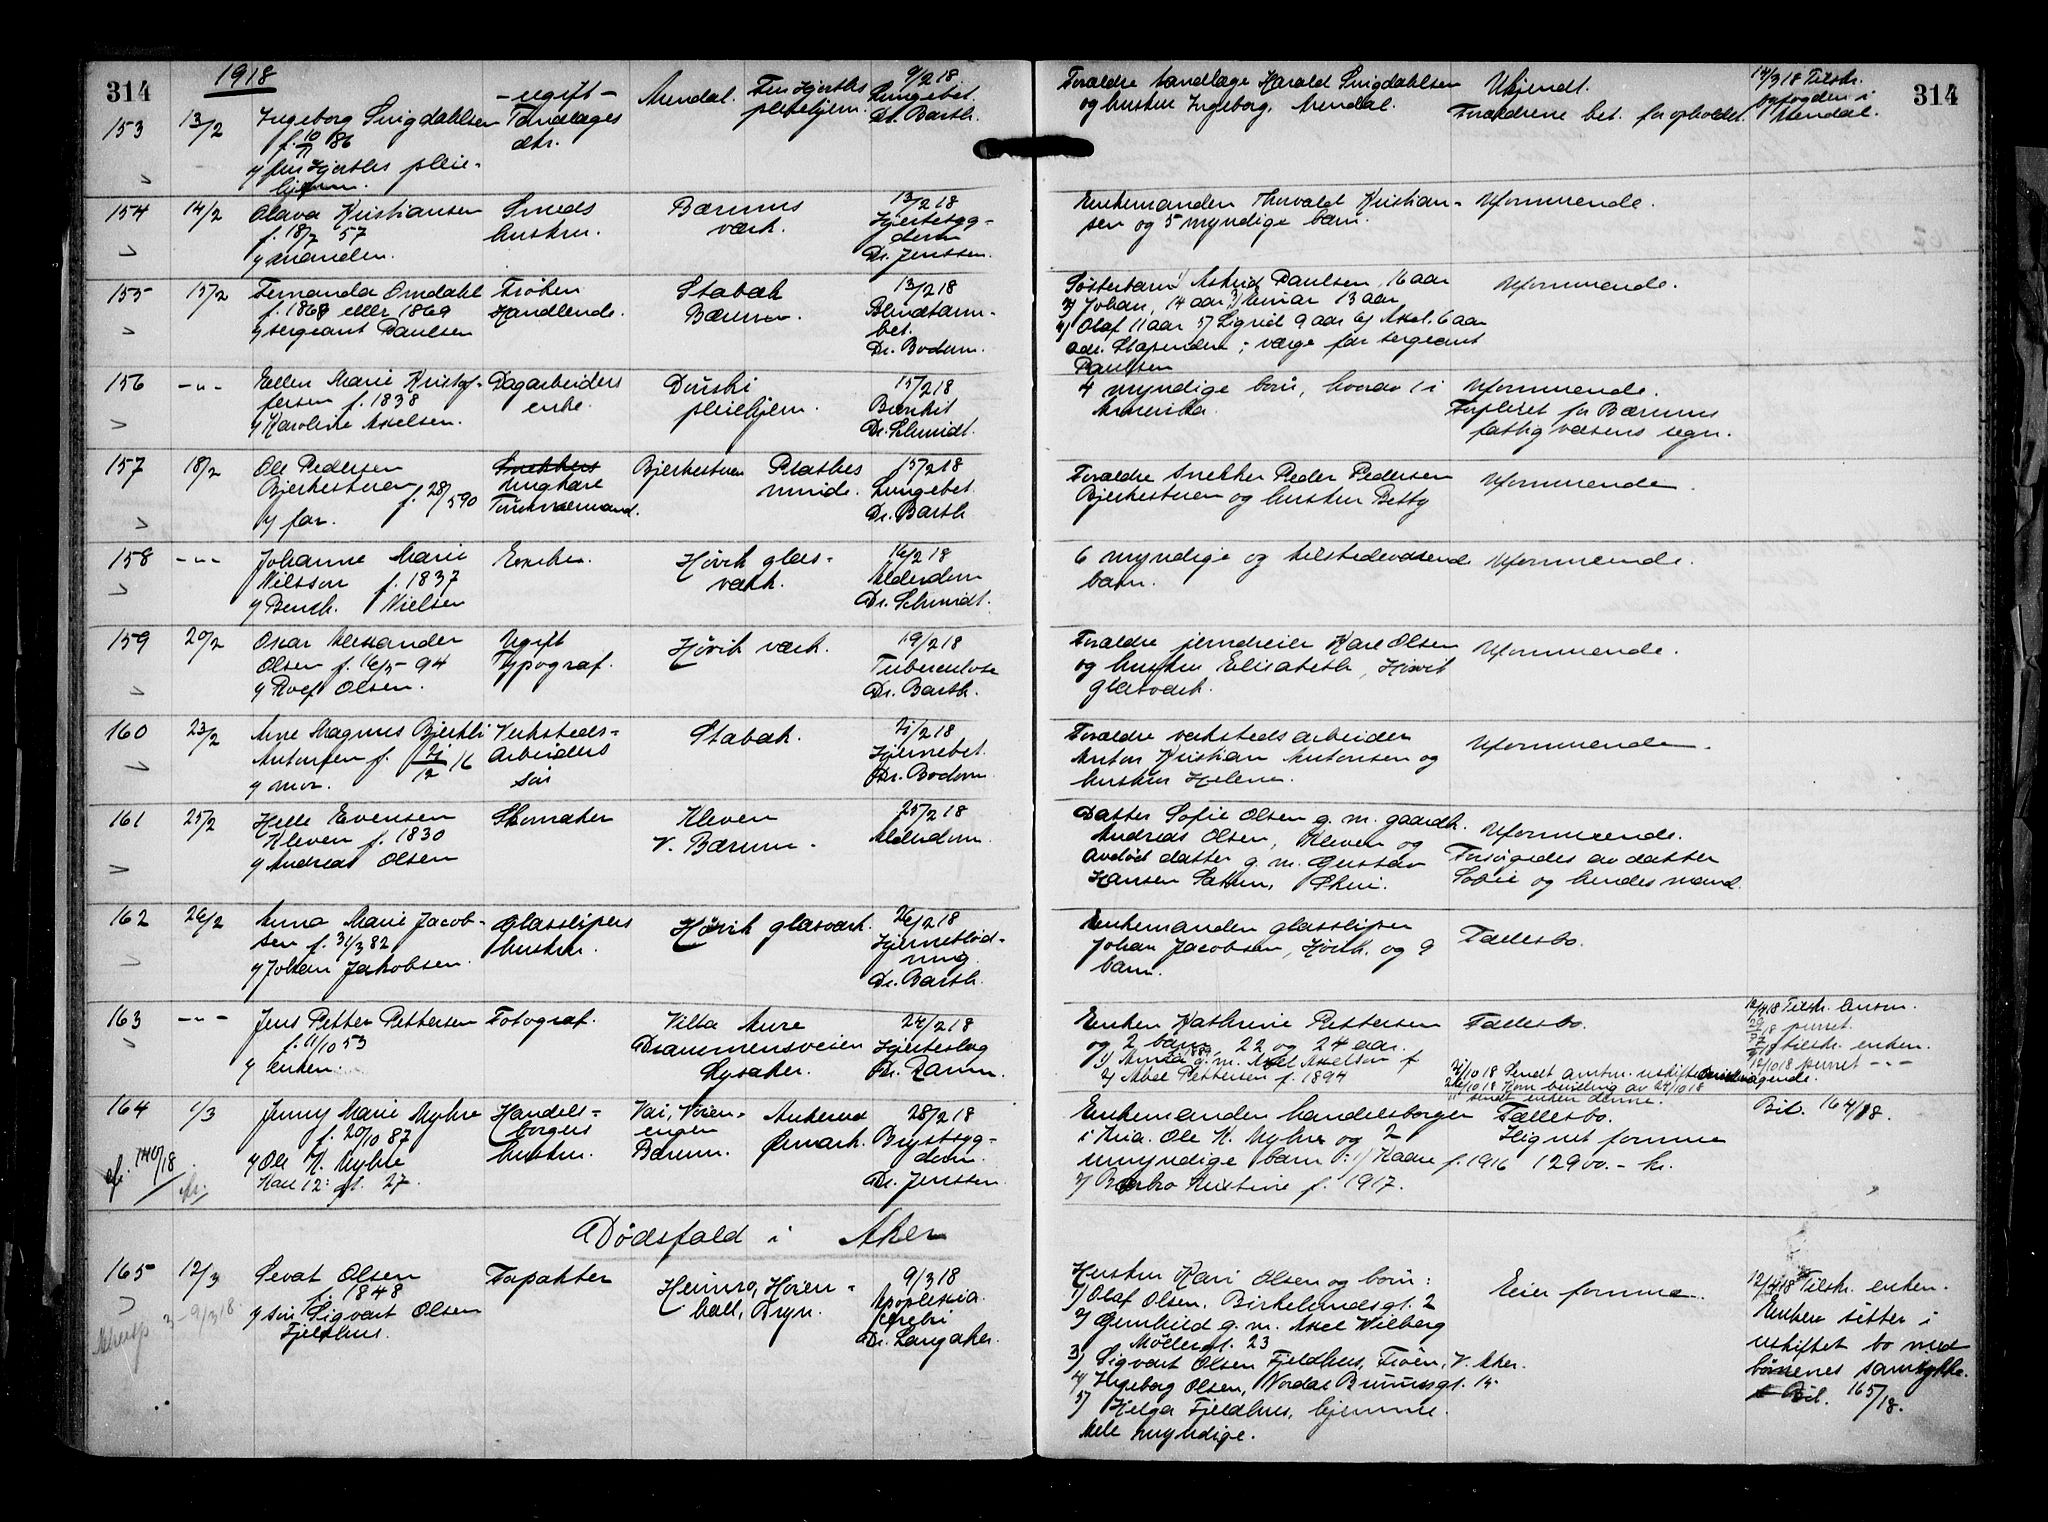 314
1918
153 13/2 Ingeborg Svigdahlsen
f. 10/11 86
pleie-
hjem.
- ugift -
Tandlæges
dtr.
Arendal.
pleiehjem.
9/2 18
Lungebet.
Dr. Barth.
Foraldre tandlæge Harald Svigdahlsen
og hustru Ingeborg, Arendal.
Ukjendt.
Forældrene bet. for opholdet.
14/3 18 Tilskr.
byfogden i
Arendal.
314
154 14/2 Olava Kristiansen
f. 18/7 57
v/ manden.
Smeds
hustru.
Bærums
værk.
13/2 18
Hjertesyg-
dom
Dr. Jenssen.
Enkemanden Thorvald Kristian-
sen og 5 myndige barn.
Uformuende.
155 15/2 Fernanda Omdahl
f. 1868 eller 1869
v/ sergeant Paulsen
Frøken
Handlende.
Stabæk
Bærum.
13/2 18
Blindtarm-
bet.
Dr. Bodom.
Søsterbarn 1/ Astrid Paulsen, 16 aar
2/ Johan, 14 aar 3/ Einar 13 aar
4/ Olaf 11 aar 5/ Sigrid 9 aar 6/ Axel, 6 aar
værge far sergeant
Paulsen
Uformuende.
156 -"- Ellen Marie Kristof-
fersen f. 1838
v/ Karoline Axelsen.
Dagarbeiders
enke.
Dønski
pleiehjem.
15/2 18
Bronkit
Dr. Schmidt.
4 myndige børn, hvorav 1 i
Amerika.
Uformuende.
Forpleiet for Bærums
fattigvæsens regn.
157 18/2 Ole Pedersen
Bjerkestuen f. 28/5 90
v/ far.
Snekkers
ungkare
Bjerkestuen
15/2 18
Lungebet.
Dr. Barth
Foraldre snekker Peder Pedersen
Bjerkestuen og hustru Betty
Uformuende.
158 -"- Johanne Marie
Nilsson f. 1837
v/ Bernh. Nielsen
Enke.
Høvik glas-
værk.
16/2 18
Alderdom
Dr. Schmidt.
6 myndige og tilstedeværende
barn.
Uformuende.
159 20/2 Oskar Alexander
Olsen f. 16/5 94
v/ Rolf Olsen.
Ugift
Typograf.
Høvik værk.
19/2 18
Tuberkulose
Dr. Barth.
Foraldre jerndreier Karl Olsen
og hustru Elisabeth, Høvik
glasværk.
Uformuende.
160 23/2 Arne Magnus Bjerkli
Antonsen f. 21/12 16
v/ mor.
Verksteds-
arbeiders
søn
Stabæk.
21/2 18
Hjernebet.
Dr. Bodom.
Foraldre verkstedsarbeider
Anton Kristian Antonsen og
hustru Helene.
Uformuende.
161 25/2 Helle Evensen
Kleven f. 1830
v/ Andreas Olsen
Skomaker
Kleven
V. Bærum.
25/2 18
Alderdom.
Datter Sofie Olsen g. m. gaardb.
Andreas Olsen, Kleven og
avdød datter g. m. Gustav
Hansen Sætern, Skui.
Uformuende.
Forsørgedes av datter
Sofie og hendes mand.
162 26/2 Anna Marie Jacob-
sen f. 31/3 82
v/ Johan Jakobsen.
Glasslipers
hustru.
Høvik glasværk.
26/2 18
Hjerneblød-
ning.
Dr. Barth.
Enkemanden glassliper
Johan Jacobsen, Høvik, og 9
barn.
Fællesbo.
163 -"- Jens Petter Pettersen
f. 11/10 53
v/ enken.
Fotograf.
Villa Aure
Drammensveien
Lysaker.
24/2 18
Hjerteslag
Dr. Ramm.
Enken Kathrine Pettersen
og 2 barn, 22 og 24 aar.
1/ Anna g. m. Axel Axelson f. 1889
2/ Abel Pettersen f. 1894
Fællesbo.
12/4 18 Tilskr. anm.
purret.
tilskr. enken.
12/10 18 purret -"-
21/10 18 Sendt anm. uskiftebevilling
24/10 18 Kom bevilling av 24/10 18
sendt enken denne.
164 1/3 Jenny Marie Myhre
f. 20/10 87
v/ Ole K. Myhre
Karl 12: gt. 27.
cfr. 140/18
Handels-
borgers
hustru.
Bærum.
Ankerud
Ørmark.
28/2 18
Brystsyg-
dom.
Dr. Jenssen.
Enkemanden handelsborger
i Kria. Ole K. Myhre og 2
umyndige barn: 1/ Kaare f. 1916
2/ Borbro Kristine f. 1917.
Fællesbo.
Lignet formue
12900.- kr.
Bil. 164/18.
Dødsfald i Aker
165 12/3 Sevat Olsen
f. 1848
v/ søn Sigvart Olsen
Fjeldhus.
Akersp 3 - 9/3 18.
Forpakter
Heimro, Høien-
hall, Bryn.
9/3 18
Apopleksia
cerebri
Dr. Langaker.
Hustru Kari Olsen og børn:
1/ Olaf Olsen, Birkelundsgt. 2
2/ Gunhild g. m. Axel Wilberg
Møllergt. 23
3/ Sigvart Olsen Fjeldhus, Frøen, V. Aker.
4/ Ingeborg Olsen, Nordal Brunsgt. 15
5/ Helga Fjeldhus, hjemme.
Alle myndige.
Eier formue.
12/4 18 Tilskr. enken.
Enken sitter i
uskiftet bo med
børnenes samtykke.
Bil. 165/18.